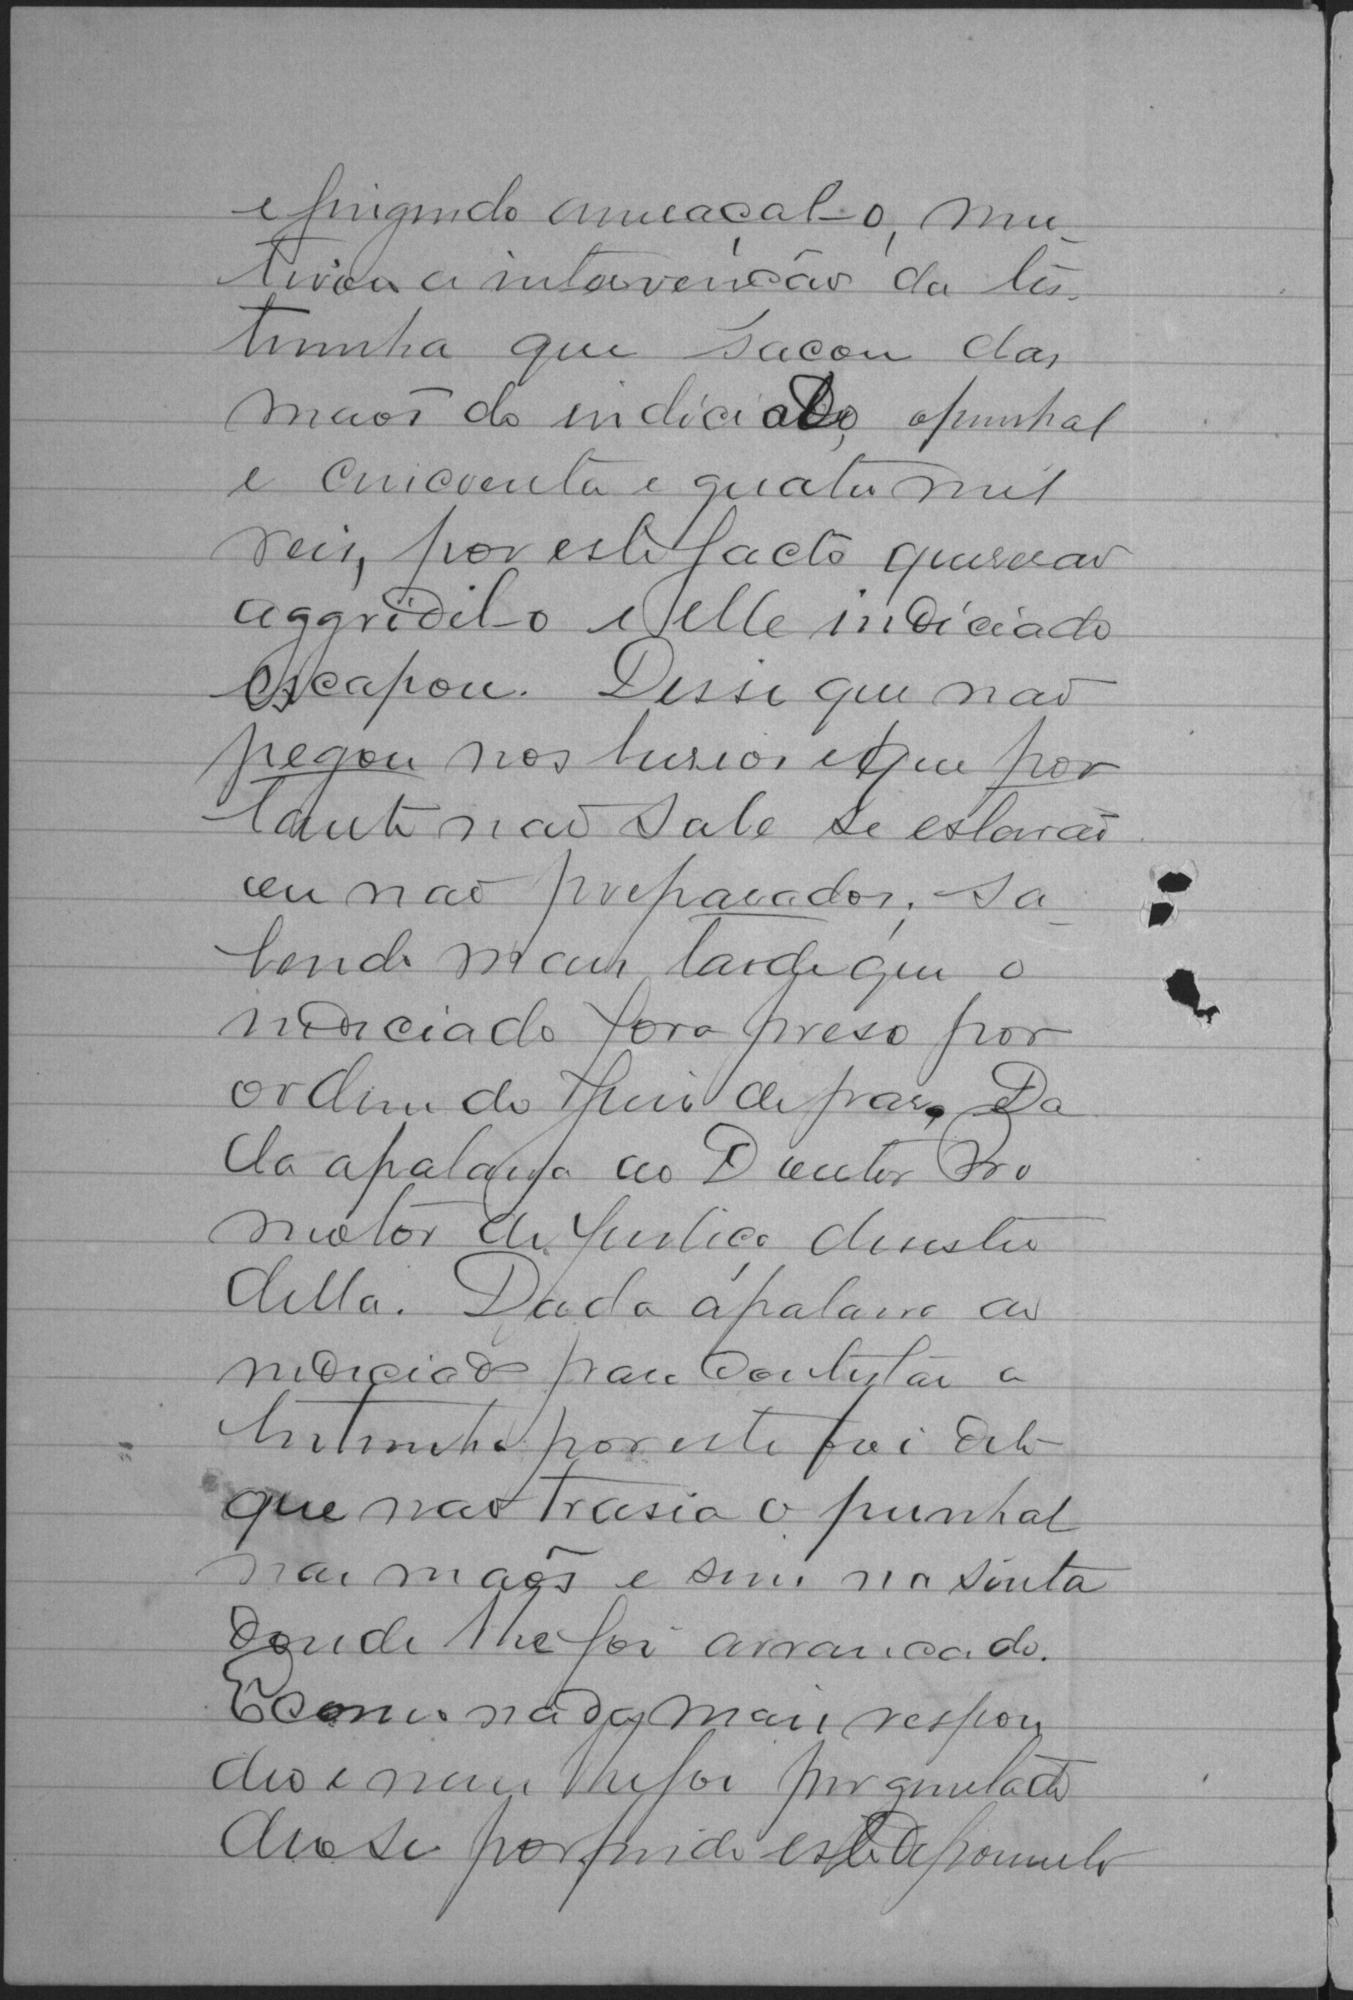 e fingindo ameaçal-o, mo-
tivou a intervenção da tes-
timunha que sacou das
maos do indiciado, o punhal
e cincoenta e quatro mil
reis, por este facto quiserao
aggridil-o e elle indiciado
escapou. Disse que nao
pegou nos busios e que por
tanto nao sabe se estavao
ou nao preparados, sa-
bendo mais tarde que o
indiciado fora preso por
ordem do Juis de pas. Da
da a palavra ao Doutor Pro
motor de Justiça desestio
della. Dada a palavra ao
indiciado para contestar a
testimunha por este foi dito
que nao trasia o punhal
nas maõs e sim na sinta
donde lhe foi arrancado.
E como nada mais respon
deo e nem lhe foi perguntado
deo se por findo este depoimento